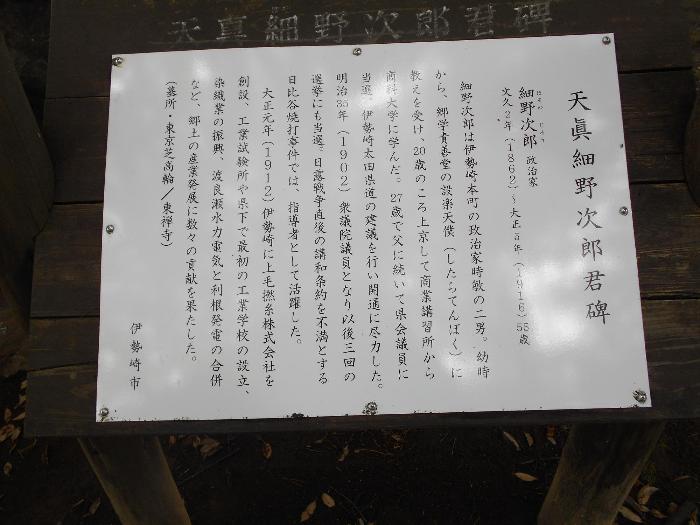 天真細野次郎君碑
天眞細野次郎君碑
細野次郎 政治家
ほその じろう
文久2年(1862)~大正5年(1916)55歳
細野次郎は伊勢崎本町の政治家時敏の二男。幼時
から、郷学貴善堂の設楽天僕(したらてんぼく)に
教えを受け、20歳のころ上京して商業講習所から
商科大学に学んだ。27歳で父に続いて県会議員に
当選、伊勢崎太田県道の建議を行い開通に尽力した。
明治35年(1902)衆議院議員となり以後三回の
選挙にも当選。日露戦争直後の講和条約を不満とする
日比谷焼打事件では、指導者として活躍した。
大正元年(1912)伊勢崎に上毛撚糸株式会社を
創設、工業試験所や県下で最初の工業学校の設立、
染織業の振興、渡良瀬水力電気と利根発電の合併
など、郷土の産業発展に数々の貢献を果たした。
(墓所・東京芝高輪/東禅寺)
伊勢崎市